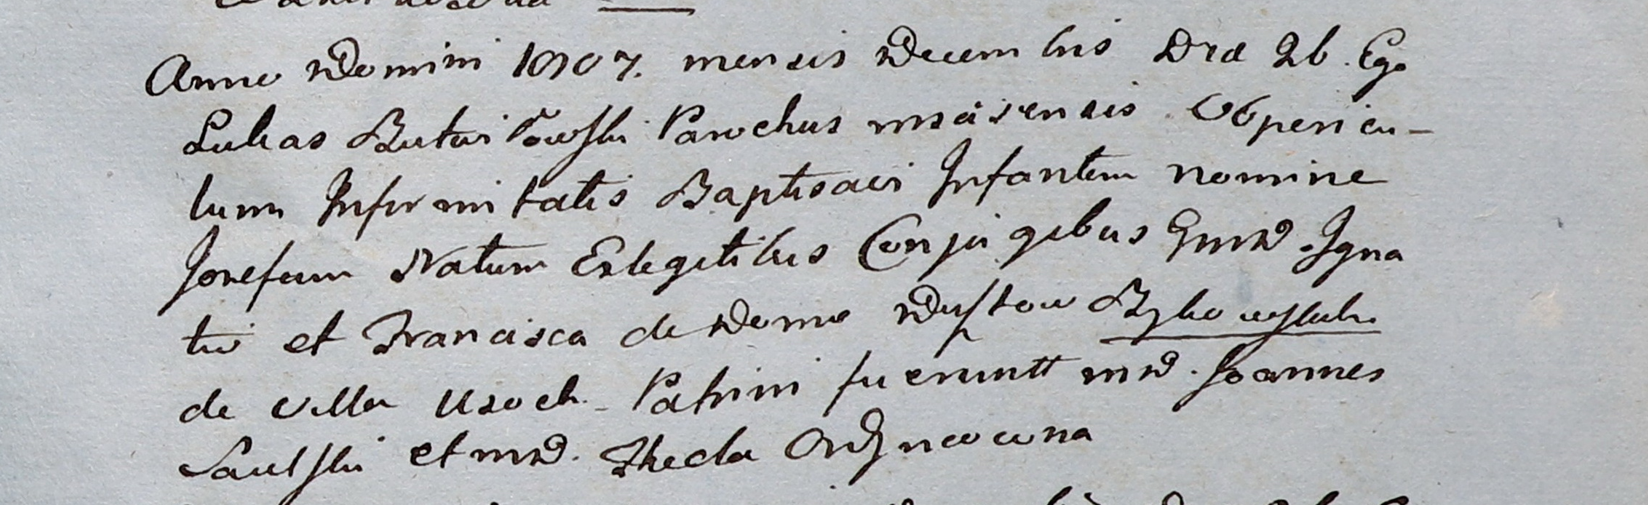 Anno Domini 1807. mensis Decembris Die 26. Ego
Lukas Butwiłowski Parochus Ob pericu-
lum Infirmitatis Baptisavi Infantem nomine
Josefum Natum Exlegitibus Conjugibus GmD. Igna
tii et Francisca de Domo Bykowskich
de Villa Usoch. Patrini fueruntt mD. Joannes
et mD. Thecla